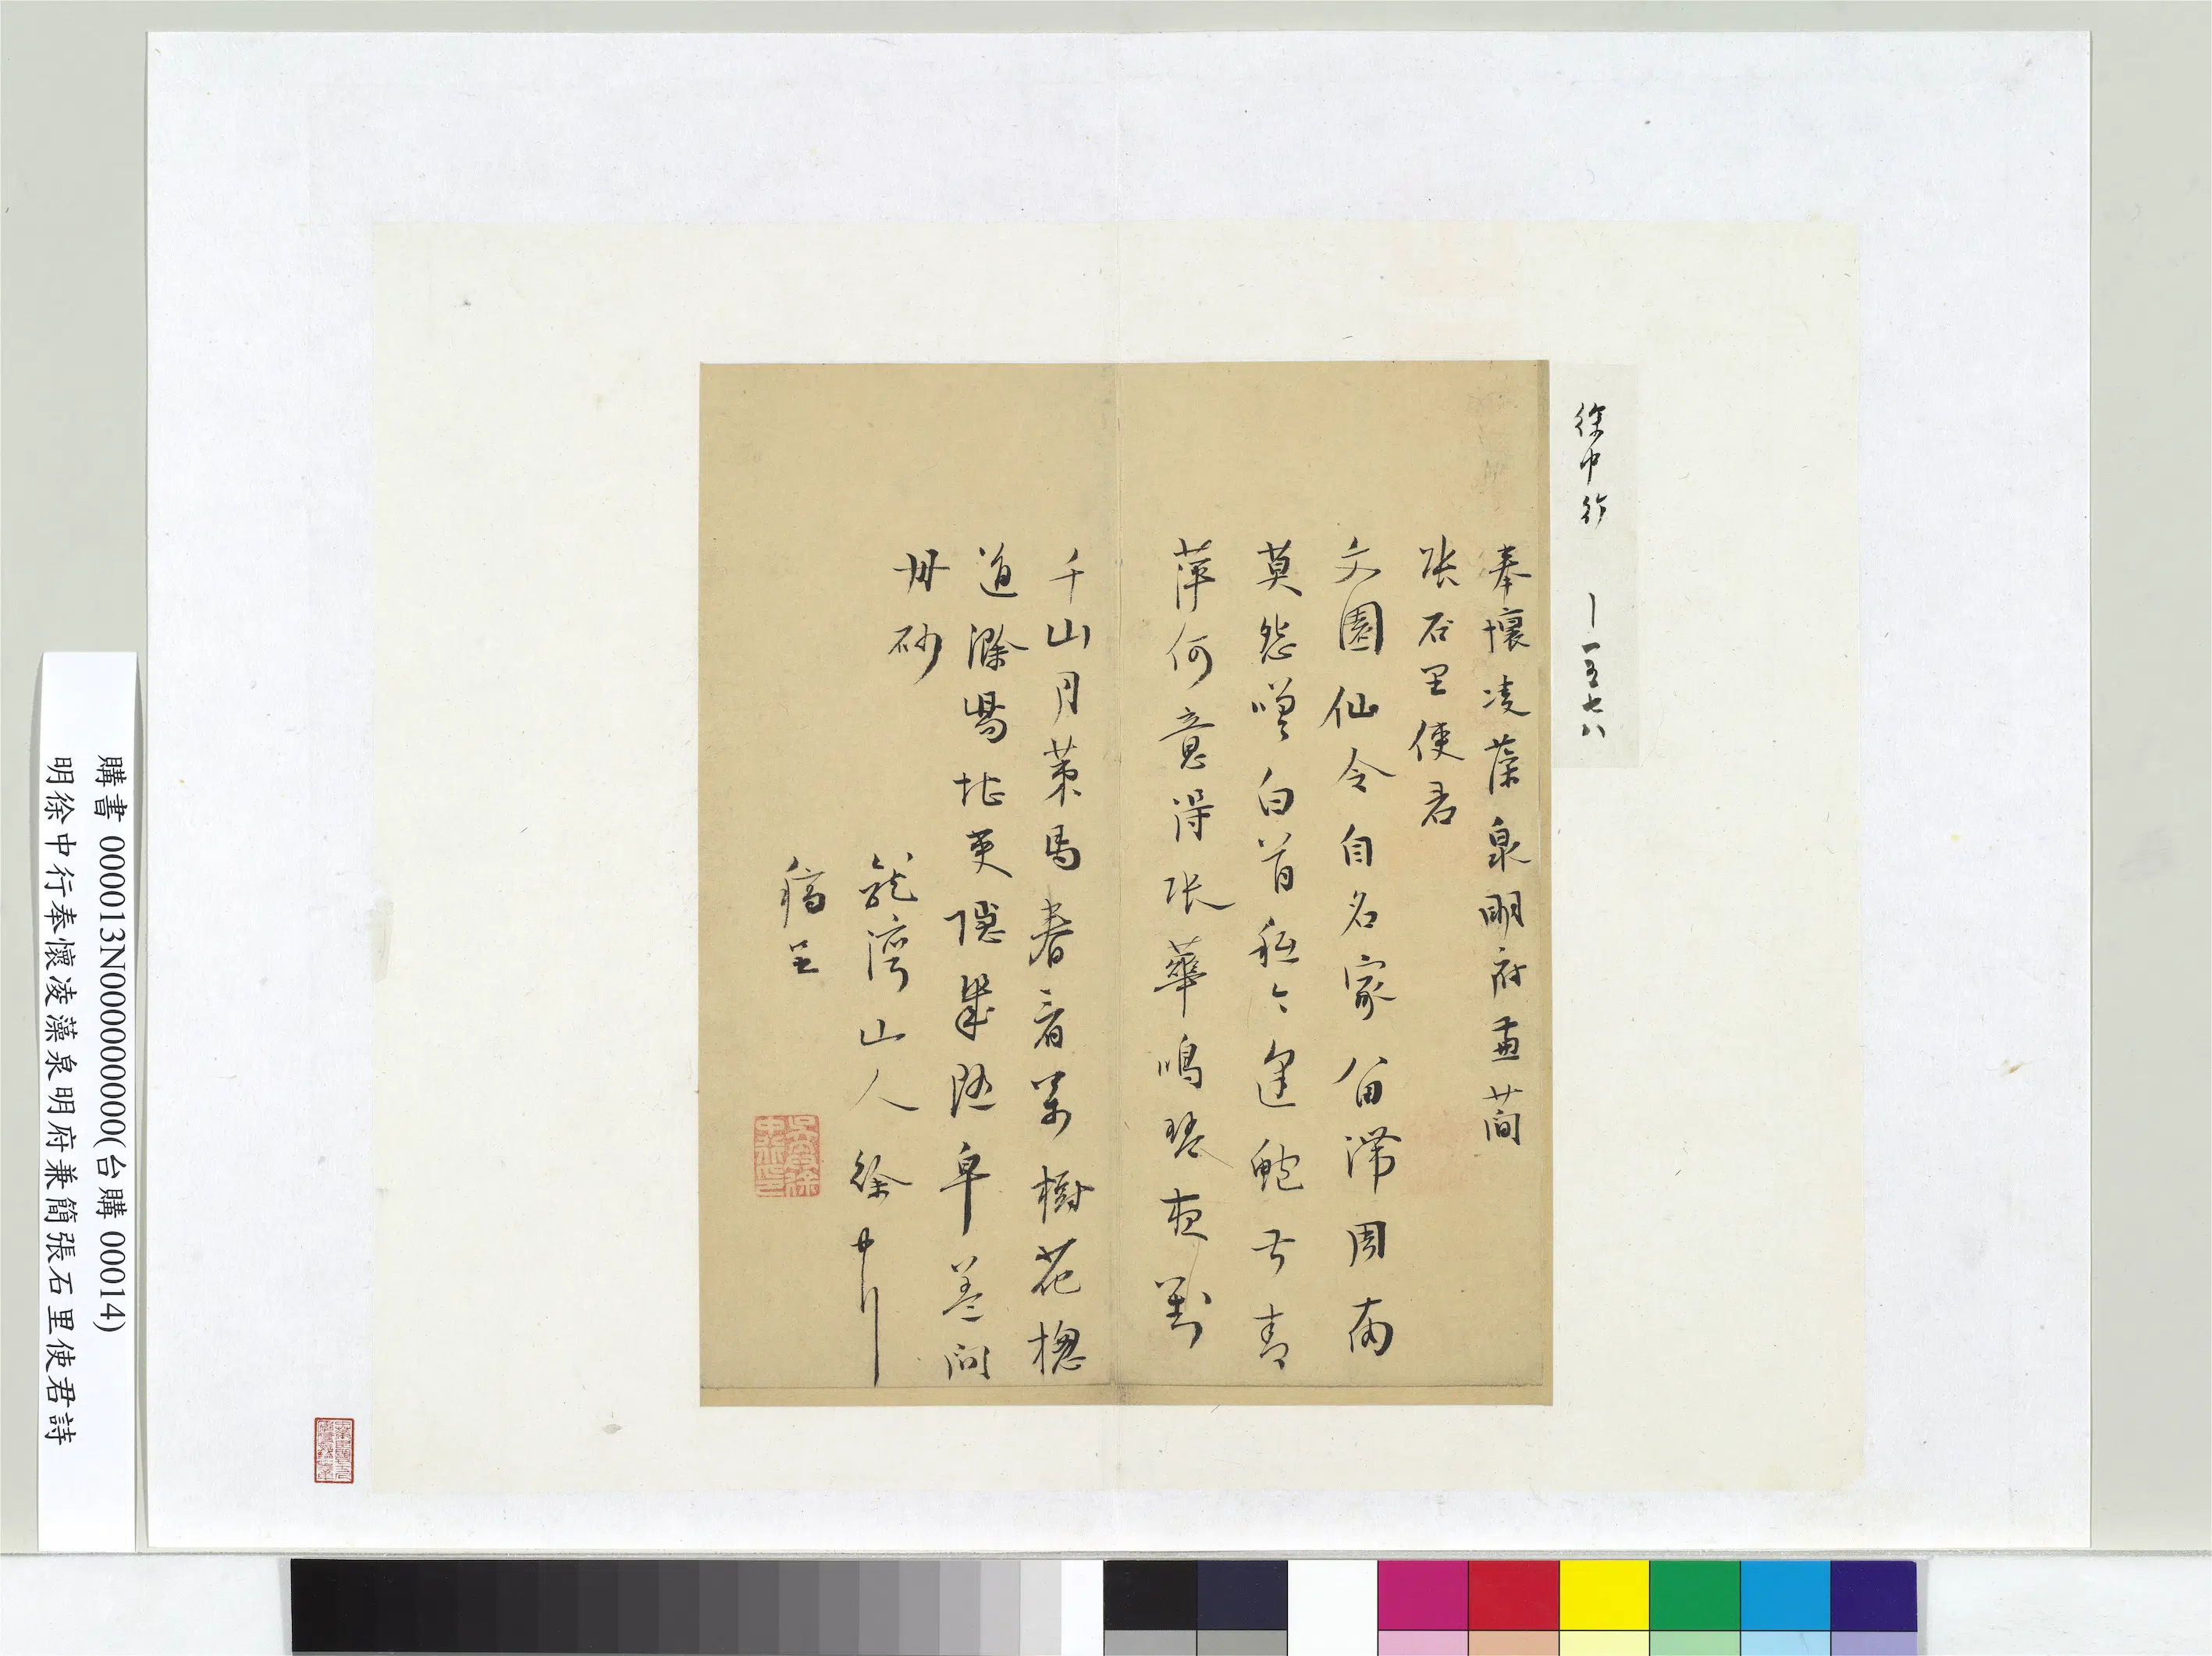 徐中行 — 一五七八
奉懷凌藻泉明府兼簡
張石里使君
文園仙令自名家留滯周南
莫怨嗟白首秪今逢鮑叔青
萍何意得張華鳴琴夜對
千山月策馬春看萬樹花揔
道滁陽堪吏隱幾隨皁蓋問
丹砂
龍灣山人徐中行
稿呈
購書 000013N000000000(台購 00014)
明徐中行奉懷凌藻泉明府兼簡張石里使君詩